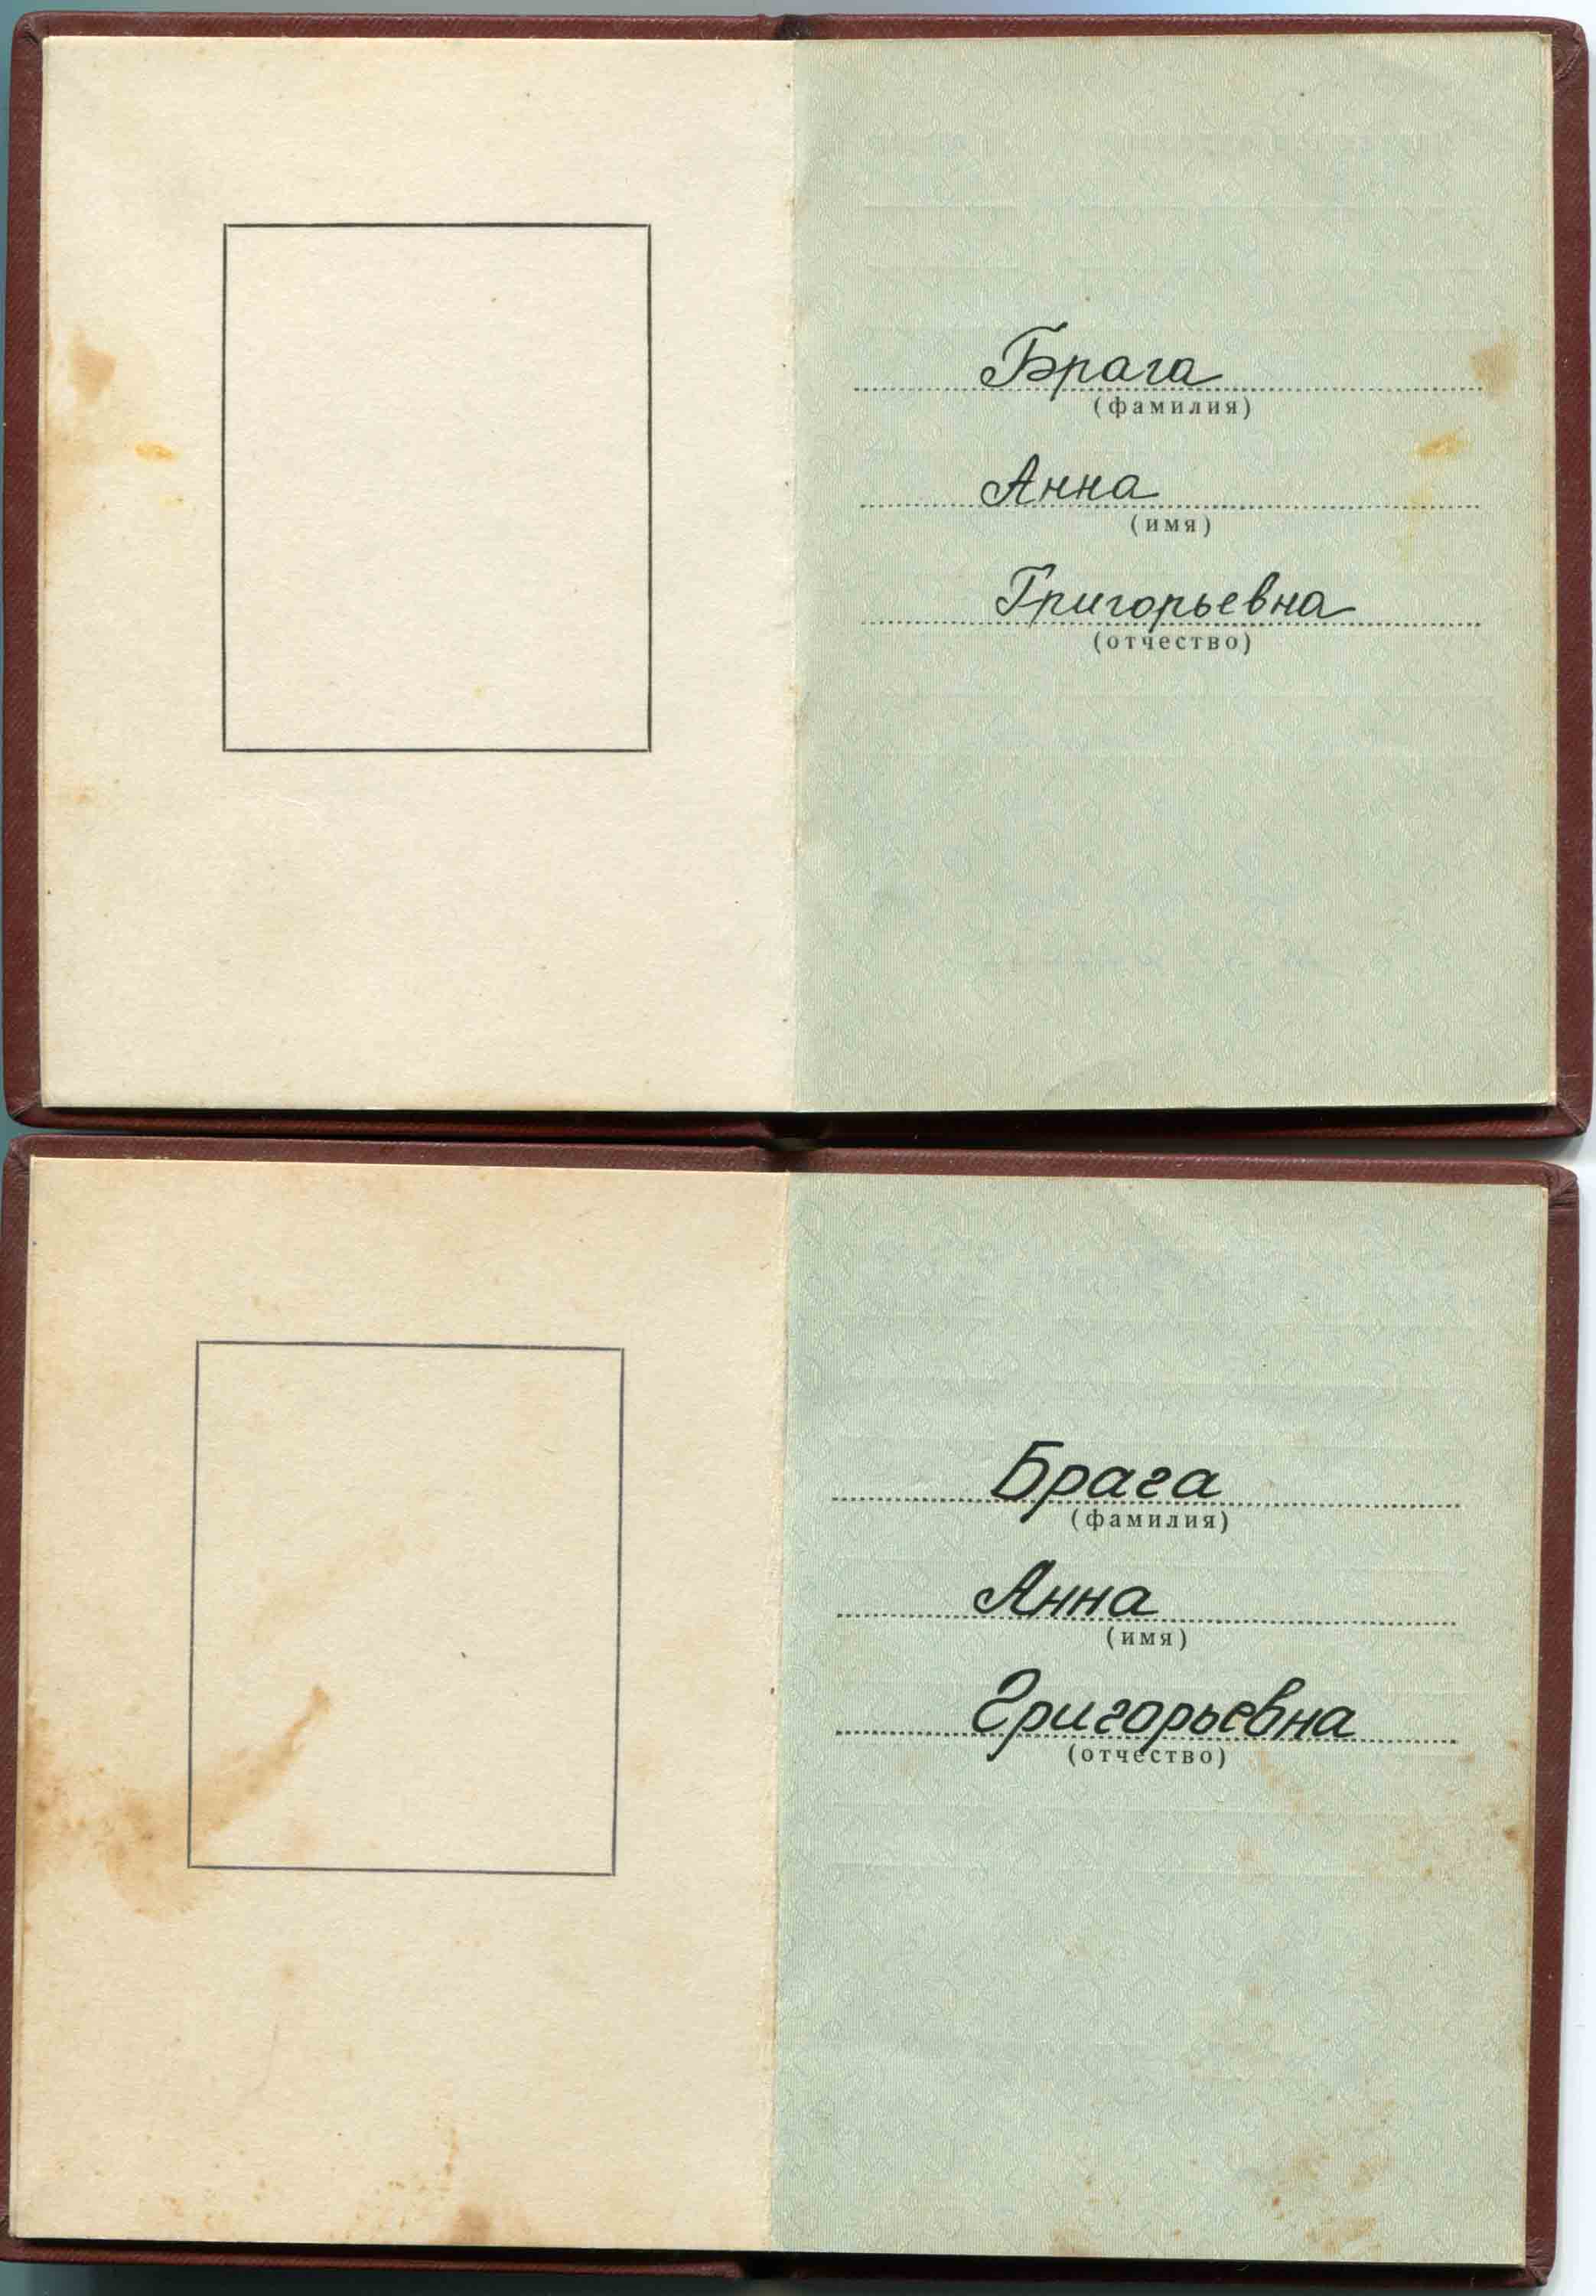 Брага
(фамилия)
Анна
(имя)
Григорьевна
(отчество)
Брага
(фамилия)
Анна
(имя)
Григорьевна
(отчество)